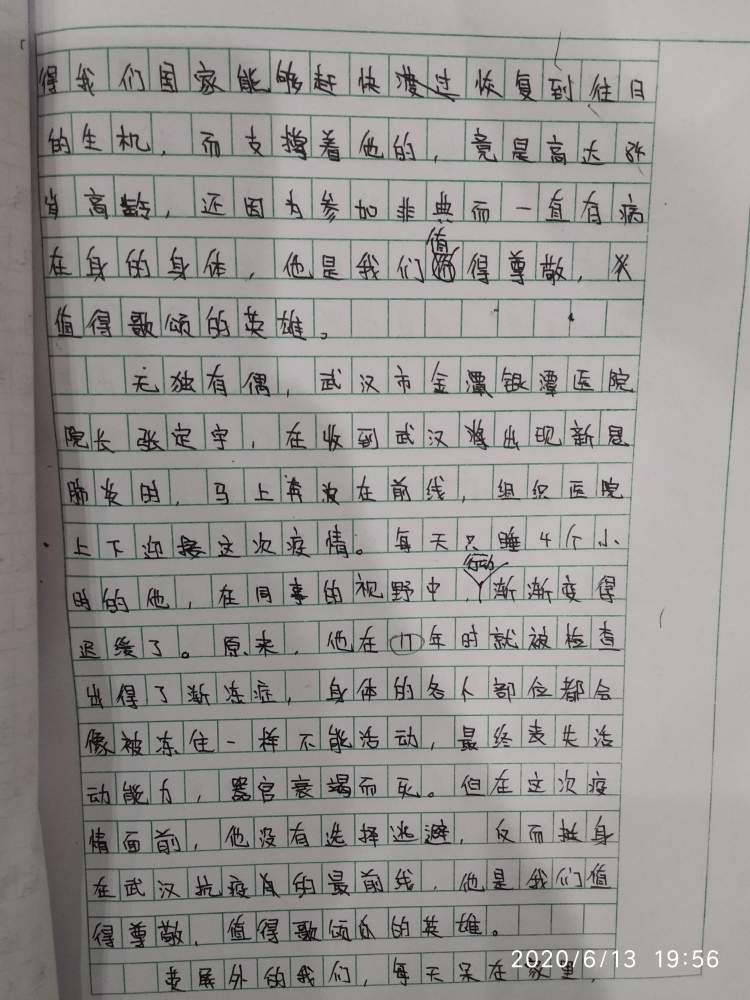 得我们国家能够赶快渡过恢复到往日
的生机，而支撑着他的，竟是高达84
岁高龄，还因为参加非典而一直有病
在身的身体，他是我们值得尊敬，
值得歌颂的英雄。
无独有偶，武汉市金潭银潭医院
院长张定宇，在收到武汉将出现新冠
肺炎时，马上奔波在前线，组织医院
上下迎接这次疫情。每天只睡4个小
时的他，在同事的视野中，行动渐渐变得
迟缓了。原来，他在17年时就被检查
出得了渐冻症，身体的各个部位都会
像被冻住一样不能活动，最终丧失活
动能力，器官衰竭而死。但在这次疫
情面前，他没有选择逃避，反而挺身
在武汉抗疫的最前线，他是我们值
得尊敬，值得歌颂的英雄。
外的我们，每天呆在家里，
2020/6/13 19:56